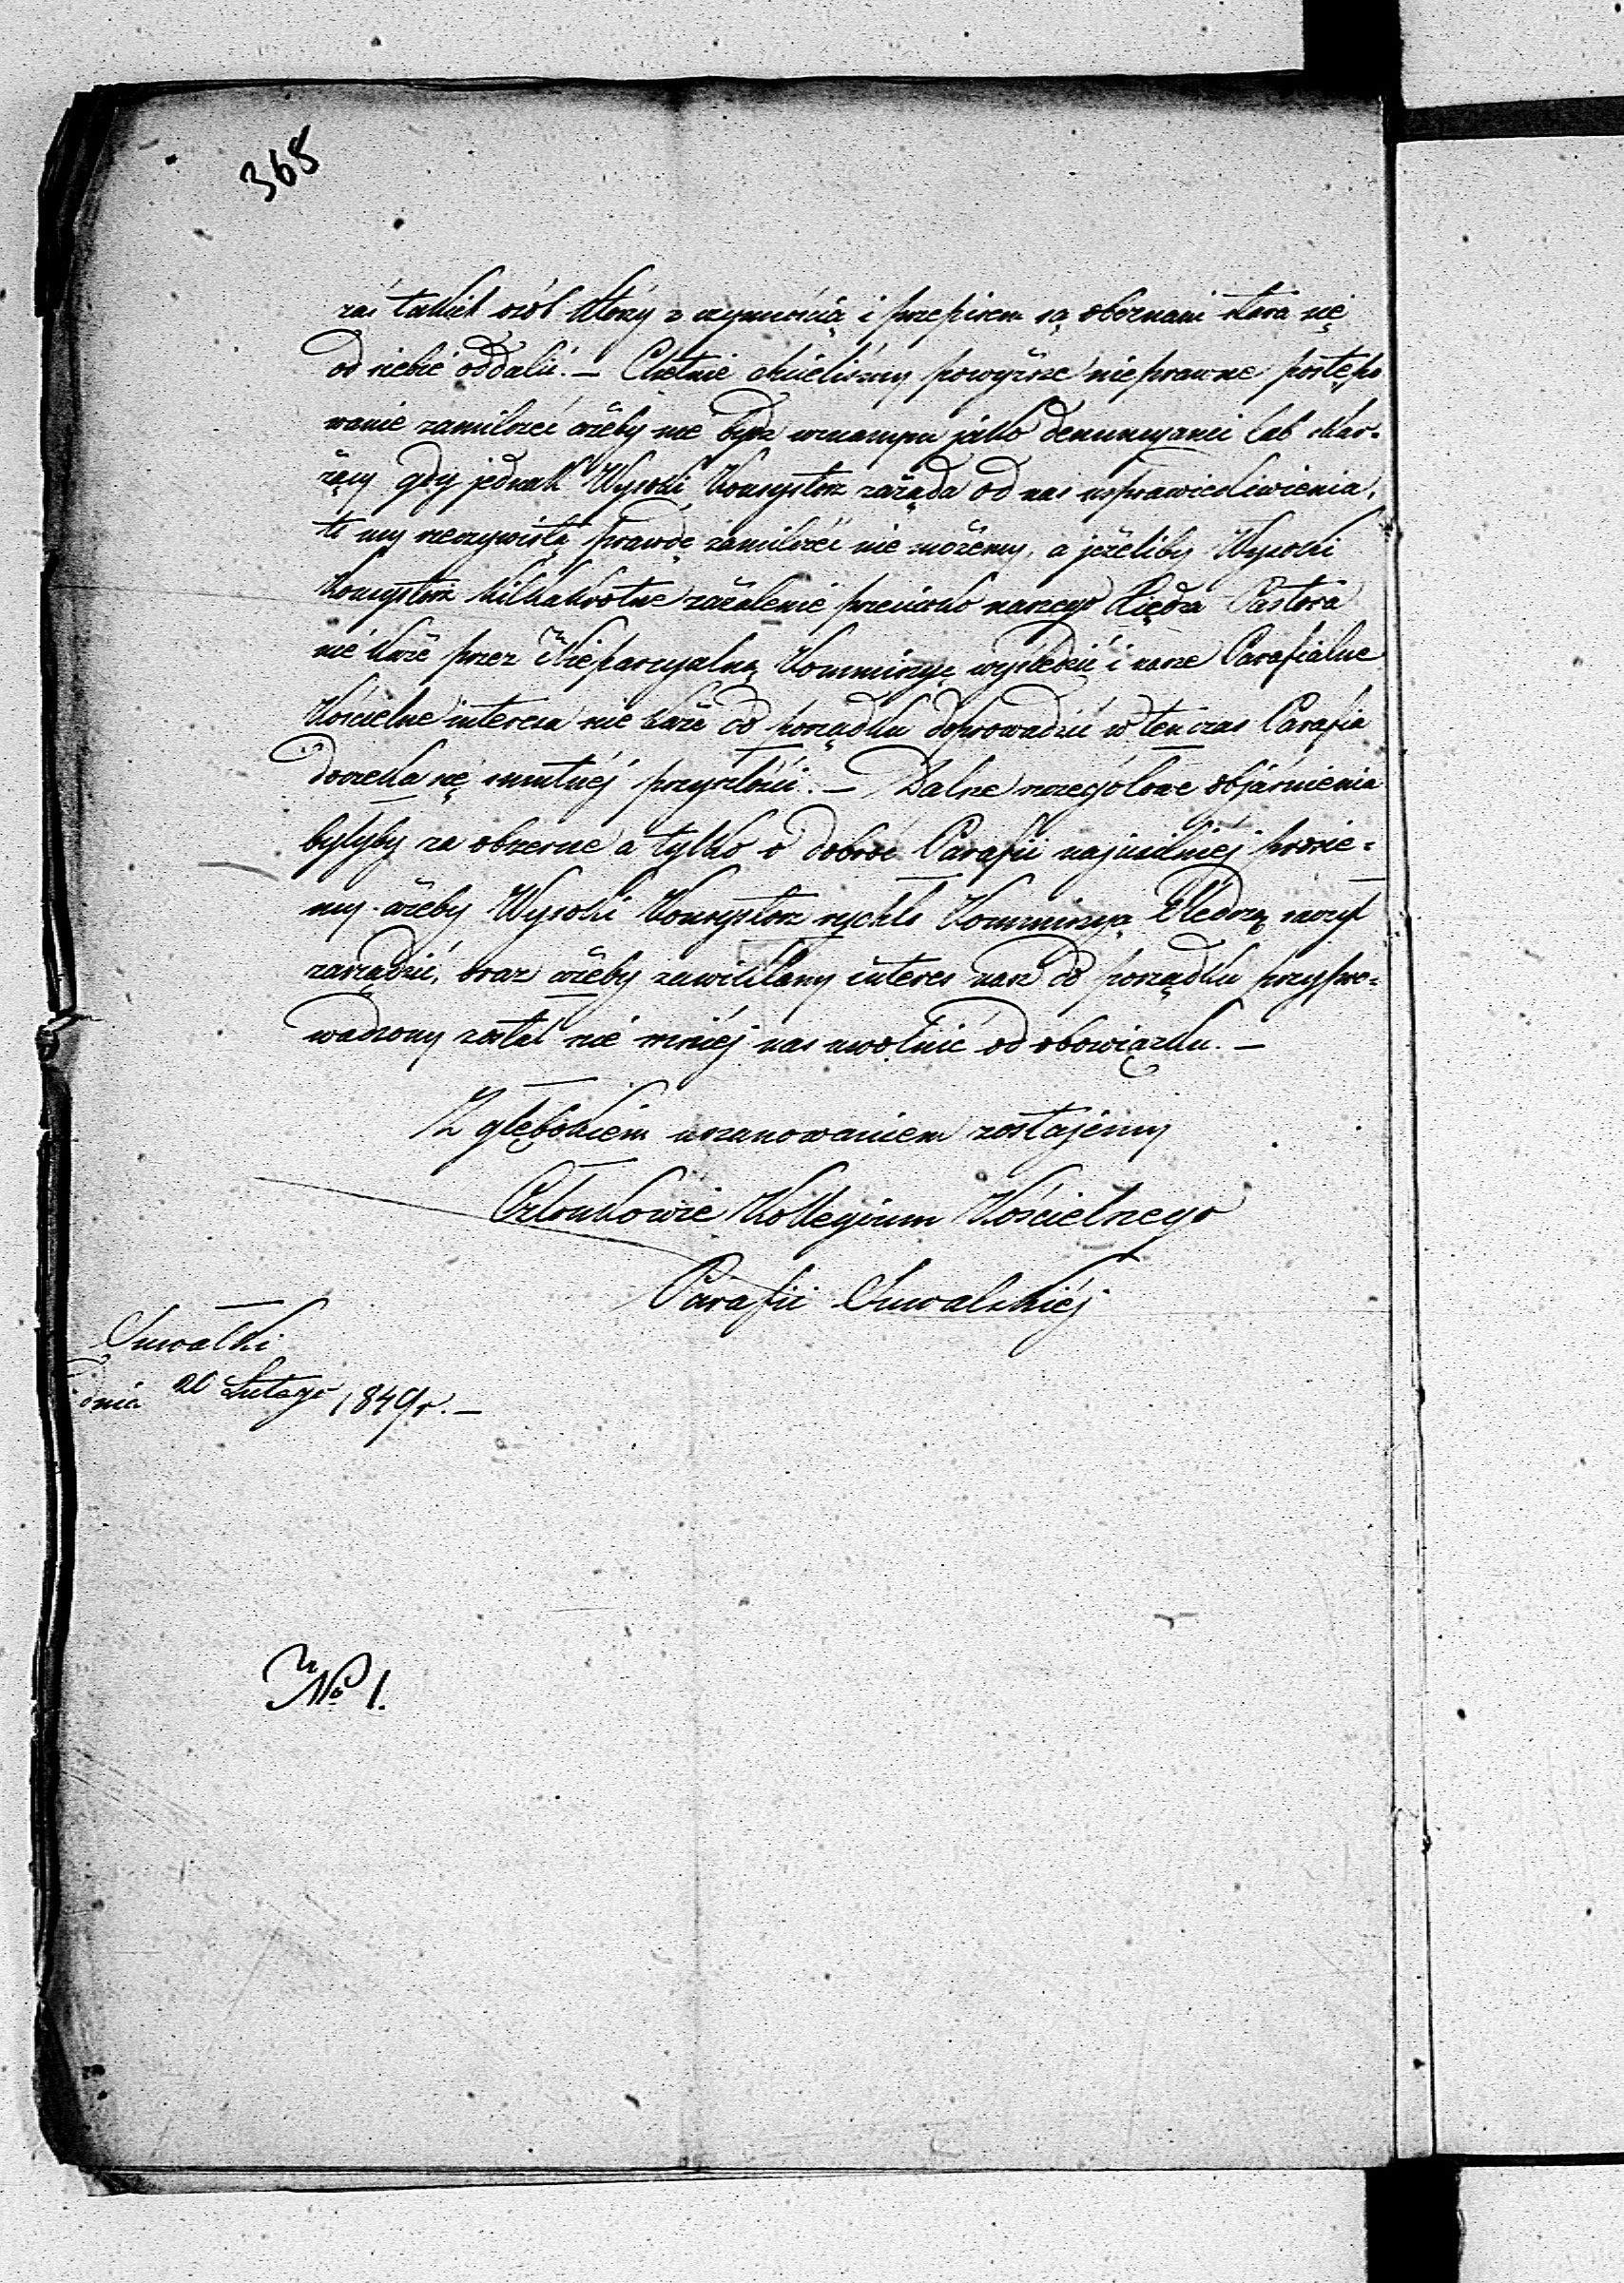 368
zaś takich osób który z czynnością i przepisem są obeznani stara się
od siebie oddalić. — Chętnie chcieliśmy powyższe nieprawne postępo
wanie zamilczeć ażeby nie bydź uznanym jako denuncyanci lub skar-
żący gdy jednak Wysoki Konsystorz zażąda od nas usprawiedliwienia,
to my rzeczywistą prawdę zamilczéć nie możemy, a jeżeliby Wysoki
Konsystorz kilkakrotne zażalenie przeciwko naszego Xiędza Pastora
nie każe przez Nieparcyalną Kommissyę wyśledzić i nasze Parafialne
Kościelne interesa nie każe do porządku doprowadzić w ten czas Parafia
doczeka się smutnéj przyszłości. — Dalsze szczegółowe objaśnienia
byłyby za obszerne a tylko o dobroć Parafii najusilniéj prosie=
my ażeby Wysoki Konsystorz rychło Kommissyą Śledczą raczył
zarządzić, oraz ażeby zawikłany interes nasz do porządku przypro=
wadzony został nie mniéj nas uwolnić od obowiązku. —
Z głębokiem uszanowaniem zostajemy
Członkowie Kollegium Kościelnego
Parafii Suwalskiéj
Suwałki
dnia 20 Lutego 1849 r. —
No 1.